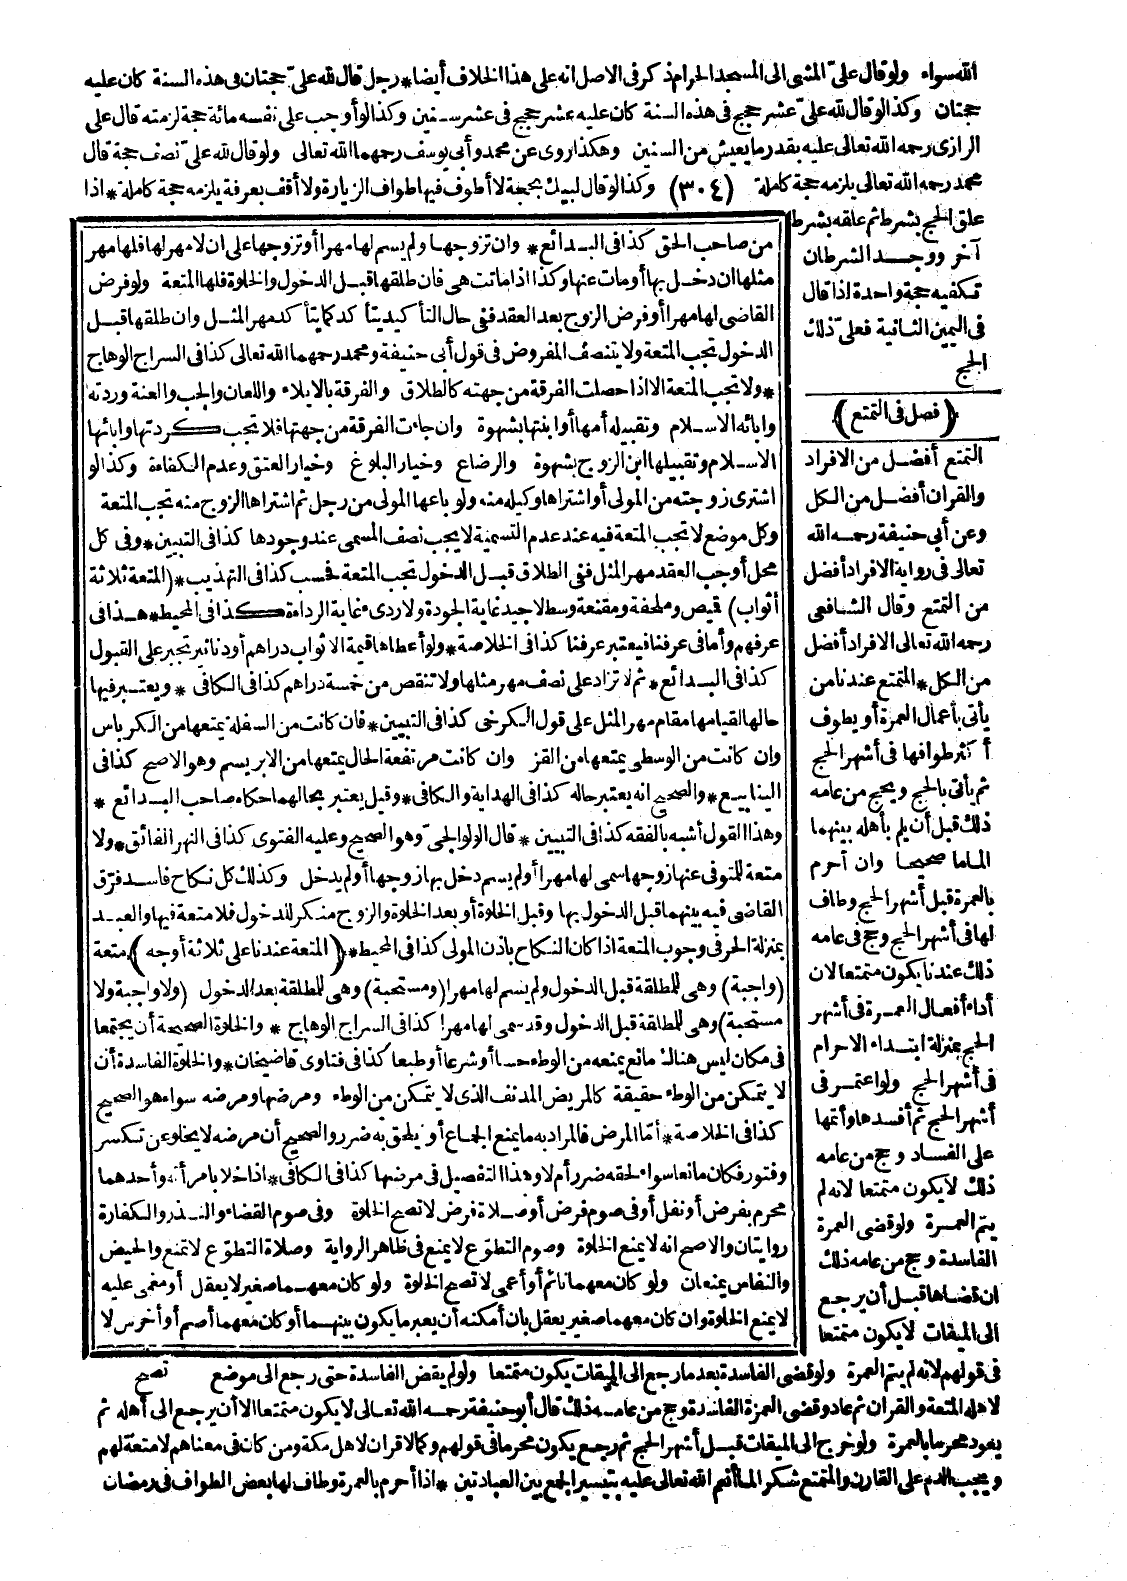 الله سواء ولو قال علىّ المشى الى المسجد الحرام ذكر فى الاصل انه على هذا الخلاف أيضا * رجل قال لله علىّ حجتان فى هذه السنة كان عليه
حجتان وكذا لو قال لله علىّ عشر حجج فى هذه السنة كان عليه عشر حجج فى عشر سنين وكذا لو أوجب على نفسه مائة حجة لزمته قال على
الرازى رحمه الله تعالى عليه بقدر ما يعيش من السنين وهكذا روى عن محمد وأبى يوسف رحمهما الله تعالى ولو قال لله علىّ نصف حجة قال
محمد رحمه الله تعالى يلزمه حجة كاملة (٣٠٤) وكذا لو قال لبيك بحجة لا أطوف فيها طواف الزيارة ولا أقف بعرفة يلزمه حجة كاملة * اذا
علق الحج بشرط ثم علقه بشرط
آخر ووجد الشرطان
تكفيه حجة واحدة اذا قال
فى اليمين الثانية فعلىّ ذلك
الحج
(فصل فى التمتع)
التمتع أفضل من الافراد
والقران أفضل من الكل
وعن أبى حنيفة رحمه الله
تعالى فى رواية الافراد أفضل
من التمتع وقال الشافعى
رحمه الله تعالى الافراد أفضل
من الكل * المتمتع عندنا من
يأتى بأعمال العمرة أو يطوف
أكثر طوافها فى أشهر الحج
ثم يأتى بالحج ويحج من عامه
ذلك قبل أن يلم بأهله بينهما
الماما صحيحا وان أحرم
بالعمرة قبل أشهر الحج وطاف
لها فى أشهر الحج وحج فى عامه
ذلك عندنا يكون متمتعا لان
أداء أفعال العمرة فى أشهر
الحج بمنزلة ابتداء الاحرام
فى أشهر الحج ولو اعتمر فى
أشهر الحج ثم أفسدها وأتمها
على الفساد وحج من عامه
ذلك لا يكون متمتعا لانه لم
يتم العمرة ولو قضى العمرة
الفاسدة وحج من عامه ذلك
ان قضاها قبل أن يرجع
الى الميقات لا يكون متمتعا
من صاحب الحق كذا فى البدائع * وان تزوجها ولم يسم لها مهرا أو تزوجها على ان لا مهر لها فلها مهر
مثلها ان دخل بها أو مات عنها وكذا اذا ماتت هى فان طلقها قبل الدخول والخلوة فلها المتعة ولو فرض
القاضى لها مهرا أو فرض الزوج بعد العقد ففى حال التأكيد يتأكد كما يتأكد مهر المثل وان طلقها قبل
الدخول تجب المتعة ولا يتنصف المفروض فى قول أبى حنيفة ومحمد رحمهما الله تعالى كذا فى السراج الوهاج
* ولا تجب المتعة الا اذا حصلت الفرقة من جهته كالطلاق والفرقة بالايلاء واللعان والجب والعنة وردته
وابائه الاسلام وتقبيله أمها أو ابنتها بشهوة وان جاءت الفرقة من جهتها فلا تجب كردتها وابائها
الاسلام وتقبيلها ابن الزوج بشهوة والرضاع وخيار البلوغ وخيار العتق وعدم الكفاءة وكذا لو
اشترى زوجته من المولى أو اشتراها وكيله منه ولو باعها المولى من رجل ثم اشتراها الزوج منه تجب المتعة
وكل موضع لا تجب المتعة فيه عند عدم التسمية لا يجب نصف المسمى عند وجودها كذا فى التبيين * وفى كل
محل أوجب العقد مهر المثل ففى الطلاق قبل الدخول تجب المتعة فحسب كذا فى التهذيب * (المتعة ثلاثة
أثواب) قميص وملحفة ومقنعة وسط لا جيد غاية الجودة ولا ردىء غاية الرداءة كذا فى المحيط * هذا فى
عرفهم وأما فى عرفنا فيعتبر عرفنا كذا فى الخلاصة * ولو أعطاها قيمة الاثواب دراهم أو دنانير تجبر على القبول
كذا فى البدائع * ثم لا تزاد على نصف مهر مثلها ولا تنقص من خمسة دراهم كذا فى الكافى * ويعتبر فيها
حالها لقيامها مقام مهر المثل على قول الكرخى كذا فى التبيين * فان كانت من السفلة يمتعها من الكرباس
وان كانت من الوسطى يمتعها من القز وان كانت مرتفعة الحال يمتعها من الابريسم وهو الاصح كذا فى
الينابيع * والصحيح انه يعتبر حاله كذا فى الهداية والكافى * وقيل يعتبر بحالهما حكاه صاحب البدائع *
وهذا القول أشبه بالفقه كذا فى التبيين * قال الولوالجىّ وهو الصحيح وعليه الفتوى كذا فى النهر الفائق * ولا
متعة للمتوفى عنها زوجها سمى لها مهرا أو لم يسم دخل بها زوجها أو لم يدخل وكذلك كل نكاح فاسد فرّق
القاضى فيه بينهما قبل الدخول بها وقبل الخلوة أو بعد الخلوة والزوج منكر للدخول فلا متعة فيها والعبد
بمنزلة الحر فى وجوب المتعة اذا كان النكاح باذن المولى كذا فى المحيط * (المتعة عندنا على ثلاثة أوجه) متعة
(واجبة) وهى للمطلقة قبل الدخول ولم يسم لها مهرا (ومستحبة) وهى للمطلقة بعد الدخول (ولا واجبة ولا
مستحبة) وهى للمطلقة قبل الدخول وقد سمى لها مهرا كذا فى السراج الوهاج * والخلوة الصحيحة أن يجتمعا
فى مكان ليس هناك مانع يمنعه من الوطء حسا أو شرعا أو طبعا كذا فى فتاوى قاضيخان * والخلوة الفاسدة أن
لا يتمكن من الوطء حقيقة كالمريض المدنف الذى لا يتمكن من الوطء ومرضها ومرضه سواء هو الصحيح
كذا فى الخلاصة * أمّا المرض فالمراد به ما يمنع الجماع أو يلحق به ضرر والصحيح أن مرضه لا يخلو عن تكسر
وفتور فكان مانعا سواء لحقه ضرر أم لا وهذا التفصيل فى مرضها كذا فى الكافى * اذا خلا بامرأته وأحدهما
محرم بفرض أو نفل أو فى صوم فرض أو صلاة فرض لا تصح الخلوة وفى صوم القضاء والنذر والكفارة
روايتان والاصح انه لا يمنع الخلوة وصوم التطوّع لا يمنع فى ظاهر الرواية وصلاة التطوّع لا تمنع والحيض
والنفاس يمنعان ولو كان معهما نائم أو أعمى لا تصح الخلوة ولو كان معهما صغير لا يعقل أو مغمى عليه
لا يمنع الخلوة وان كان معهما صغير يعقل بان أمكنه أن يعبر ما يكون بينهما أو كان معهما أصم أو أخرس لا
تصح
فى قولهم لانه لم يتم العمرة ولو قضى الفاسدة بعد ما رجع الى الميقات يكون متمتعا ولو لم يقض الفاسدة حتى رجع الى موضع
لاهله المتعة والقران ثم عاد وقضى العمرة الفاسدة وحج من عامه ذلك قال أبو حنيفة رحمه الله تعالى لا يكون متمتعا الا أن يرجع الى أهله ثم
يعود محرما بالعمرة ولو خرج الى الميقات قبل أشهر الحج ثم رجع يكون محرما فى قولهم وكما لا قران لاهل مكة ومن كان فى معناهم لا متعة لهم
ويجب الدم على القارن والمتمتع شكرا لما أنعم الله تعالى عليه بتيسير الجمع بين العبادتين * اذا أحرم بالعمرة وطاف لها بعض الطواف فى رمضان